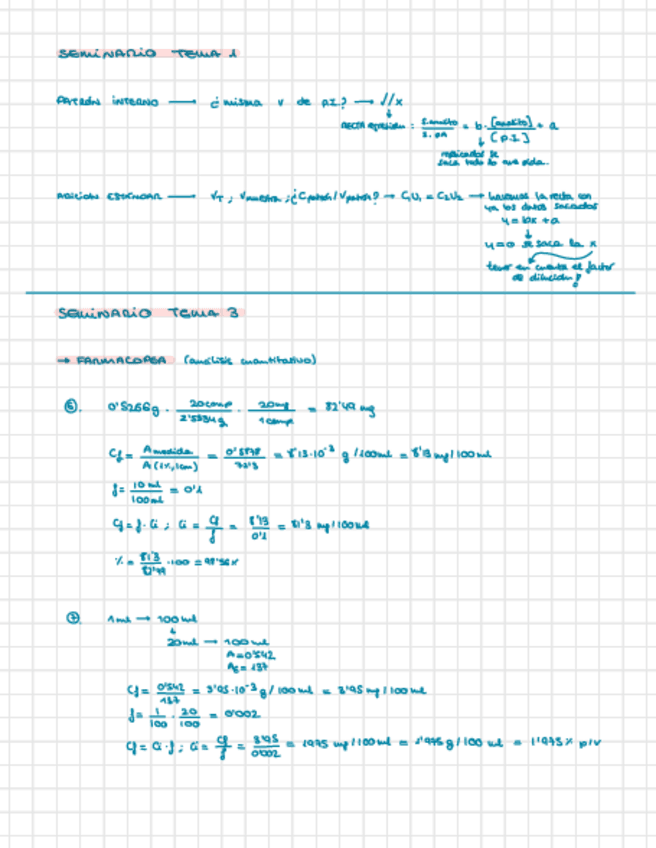 SEMINARIO TEMA 1
PATRÓN INTERNO → ¿misma v de P.I.? → //x
RECTA : S.analito/S.PA = b·[analito]/[P.I] + a
saca todo lo que pida..
ADICION ESTÁNDAR → VT; Vmuestra; ¿Cpatrón/Vpatrón? → C1V1 = C2V2 → hacemos la recta con
ya los datos sacados
y = bx + a
y=0 se saca la x
tener en cuenta el factor
de dilución!
SEMINARIO TEMA 3
→ FARMACOPEA (análisis cuantitativo)
⑥. 0'5266g · 20comp/2'5534g · 20mg/1comp = 82'49 mg
Cf = A medida/A(1%,1cm) = = 8'13·10⁻³ g/100ml = 8'13 mg/100ml
f = 10 ml/100ml = 0'1
Cf = f·Ci ; Ci = Cf/f = 8'13/0'1 = 81'3 mg/100ml
% = 81'3/82'49 ·100 = 98'56%
⑦. 1ml → 100ml
20ml → 100ml
A=0'542
As = 137
Cf = 0'542/137 = 3'95·10⁻³ g/100ml = 3'95 mg/100ml
f = 1/100 · 20/100 = 0'002
Cf = Ci·f ; Ci = Cf/f = 3'95/0'002 = 1975 mg/100ml = 1'975g/100 ml = 1'975% p/v